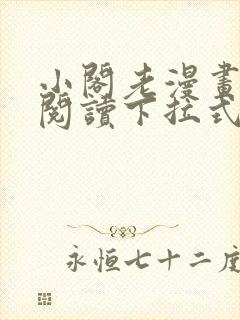 小閣老漫畫
閱讀下拉式
永恒七十二度